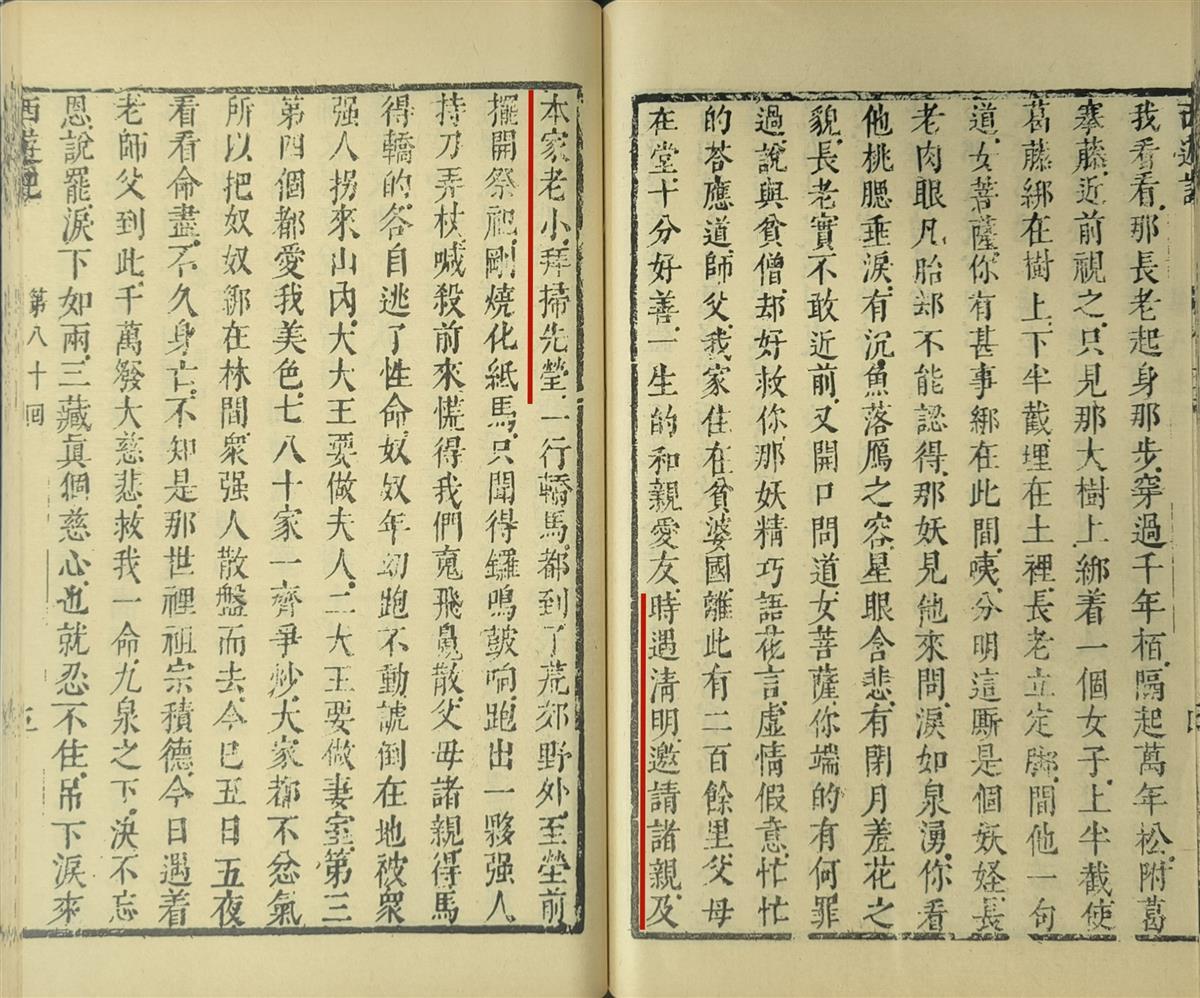 我看看那長老起身那步穿過千年栢隔起萬年松附葛
攀藤近前視之只見那大樹上綁着一個女子上半截使
葛藤綁在樹上下半截埋在土裡長老立定脚問他一句
道女菩薩你有甚事綁在此間咦分明這厮是個妖怪長
老肉眼凡胎却不能認得那妖見他來問淚如泉湧你看
他桃腮垂淚有沉魚落鴈之容星眼含悲有閉月羞花之
貌長老實不敢近前又開口問道女菩薩你端的有何罪
過說與貧僧却好救你那妖精巧語花言虛情假意忙忙
的荅應道師父我家住在貧婆國離此有二百餘里父母
在堂十分好善一生的和親愛友時遇清明邀請諸親及
本家老小拜掃先塋一行轎馬都到了荒郊野外至塋前
擺開祭祀剛燒化紙馬只聞得鑼鳴鼓响跑出一夥强人
持刀弄杖喊殺前來慌得我們䰟飛魄散父母諸親得馬
得轎的各自逃了性命奴奴年幼跑不動諕倒在地被衆
强人拐來山內大大王要做夫人二大王要做妻室第三
第四個都愛我美色七八十家一齊爭炒大家都不忿氣
所以把奴奴綁在林間衆强人散盤而去今已五日五夜
看看命盡不久身亡不知是那世裡祖宗積德今日遇着
老師父到此千萬發大慈悲救我一命九泉之下決不忘
恩說罷淚下如雨三藏眞個慈心也就忍不住吊下淚來
西遊記
第八十回